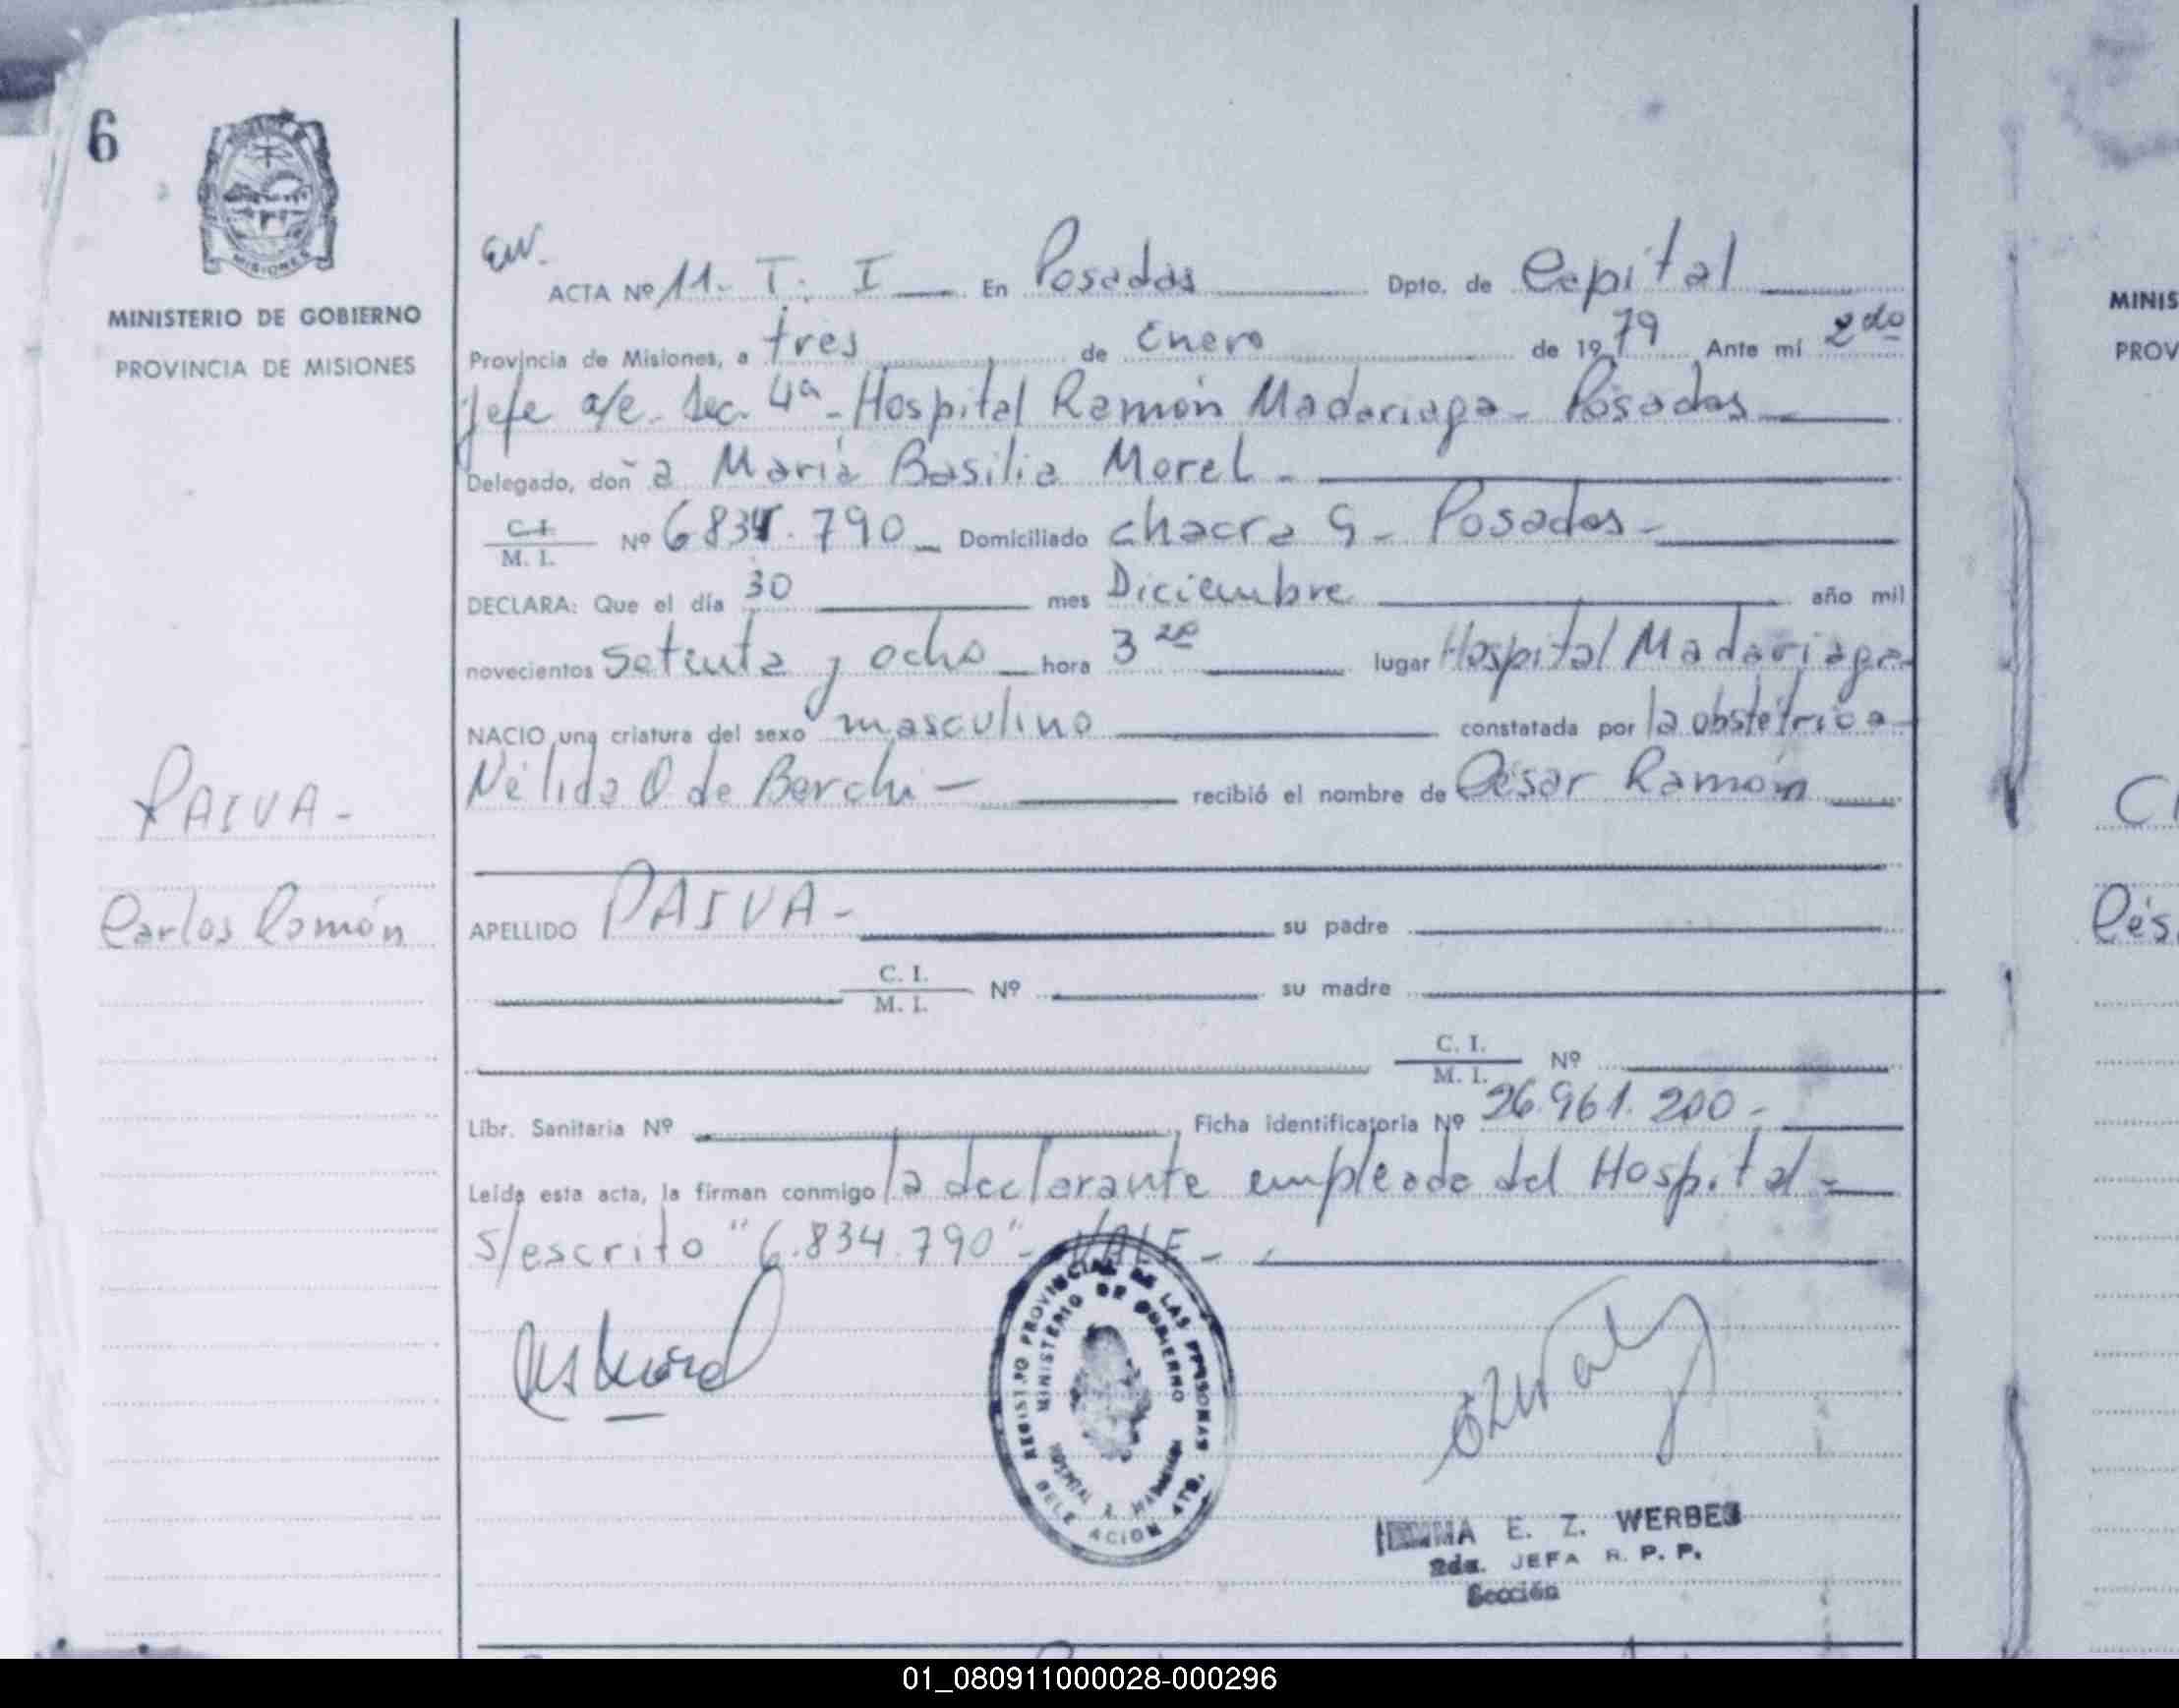 6
MISIONES
MINISTERIO DE GOBIERNO
PROVINCIA DE MISIONES
PAIVA -
Carlos Ramón
EW.
ACTA Nº 11. T. I En Posadas Dpto. de Capital
Provincia de Misiones, a tres de Enero de 1979 Ante mí 2do
Jefe a/c. Sec. 4ª - Hospital Ramón Madariaga - Posadas
Delegado, doña María Basilia Morel -
C.I. M. I. Nº 6834.790 - Domiciliado chacra 9 - Posadas -
DECLARA: Que el día 30 mes Diciembre año mil
novecientos setenta y ocho hora 3 20 lugar Hospital Madariaga
NACIO una criatura del sexo masculino constatada por la obstetrica
Nélida O de Berchi - recibió el nombre de César Ramón
APELLIDO PAIVA - su padre
C. I. M. I. Nº su madre
C. I. M. I. Nº
Libr. Sanitaria Nº Ficha identificatoria Nº 26.961.200 -
Leída esta acta, la firman conmigo la declarante empleada del Hospital -
S/escrito "6.834.790" - VALE -
REGISTRO PROVINCIAL DE LAS PERSONAS
MINISTERIO DE GOBIERNO
HOSPITAL R. MADARIAGA
DELEGACION 4TA.
E. Z. WERBES
2da. JEFA R. P. P.
Sección
MINIS
PROV
C
Cés
01_080911000028-000296